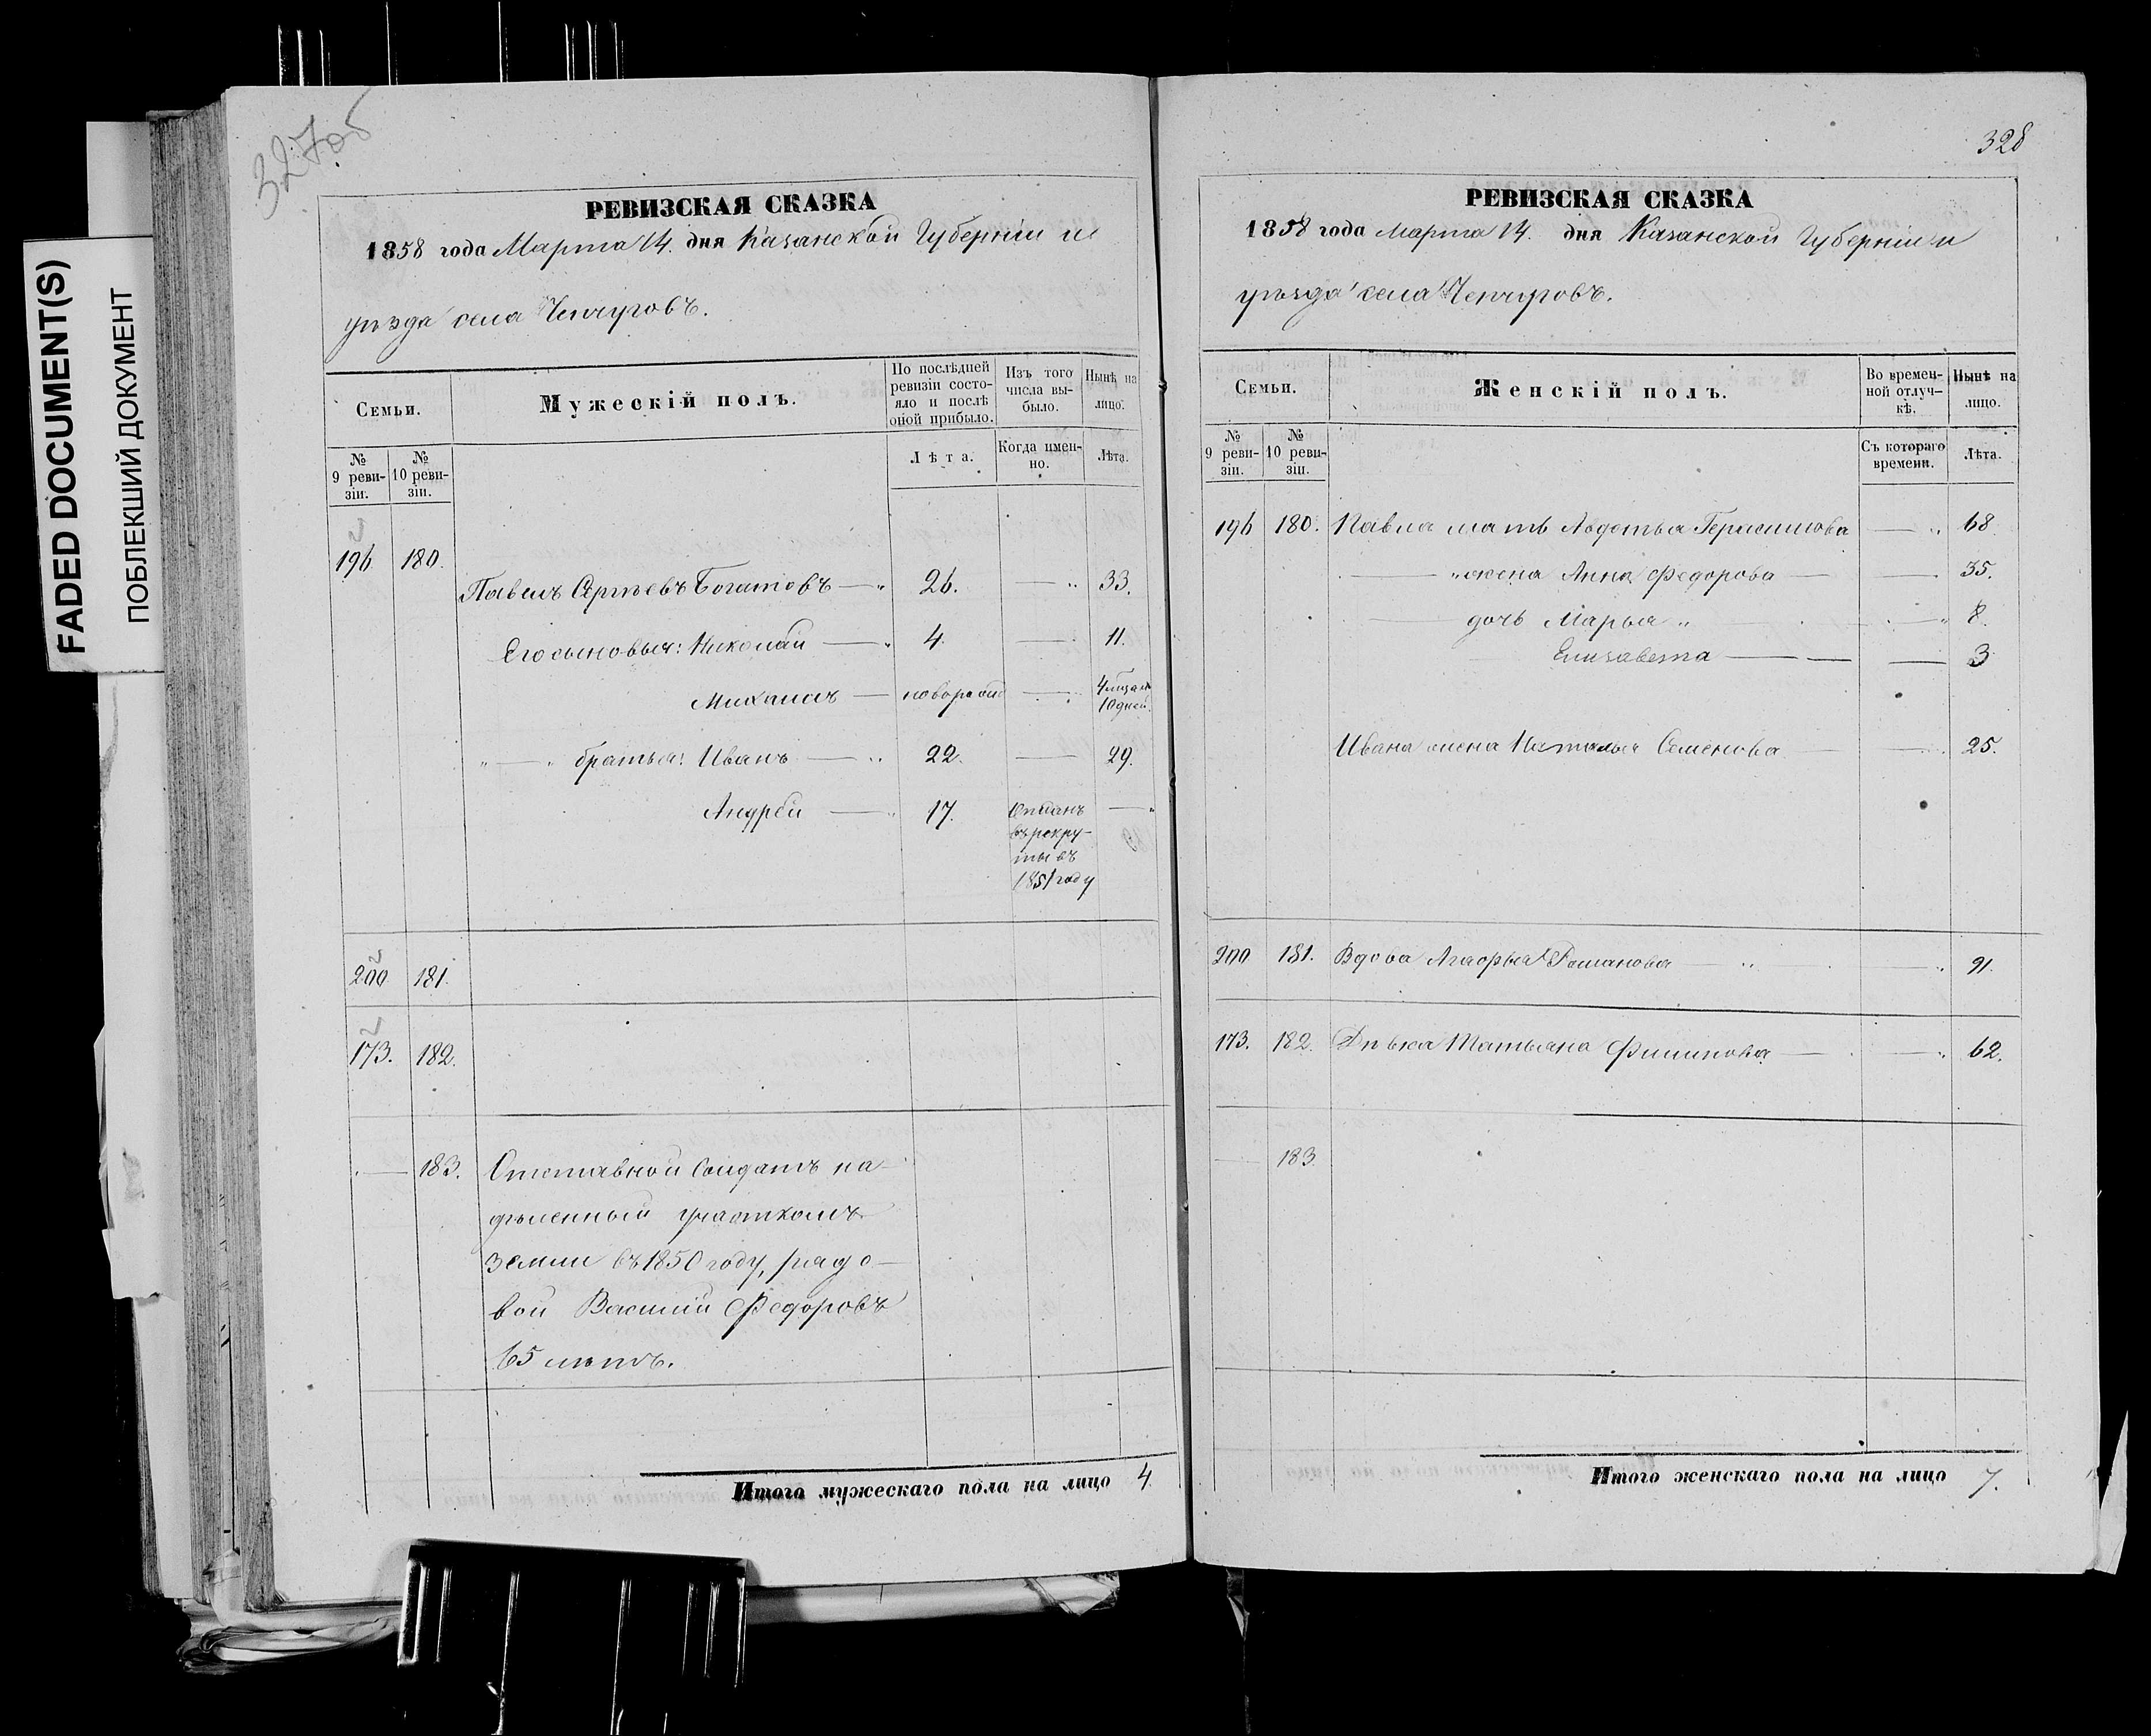 FADED DOCUMENT(S)
ПОБЛЕКШИЙ ДОКУМЕНТ
327об
РЕВИЗСКАЯ СКАЗКА
1858 года Марта 14. дня Казанской Губерніи и
уѣзда села Чепчуговъ.
Семьи.
Мужескій полъ.
По послѣдней ревизіи состояло и послѣ оной прибыло.
Изъ того числа выбыло.
Нынѣ на лицо.
№ 9 ревизіи.
№ 10 ревизіи.
Лѣта.
Когда именно.
Лѣта.
196 180.
Павелъ Сергѣевъ Богатовъ — 26. — 33.
Его сыновья: Николай — 4. — 11.
Михаилъ — новорож — 4 мѣсяц 10 дней.
" — " братья: Иванъ — 22. — 29.
Андрей — 17. Отданъ —
въ рекру-
ты въ
1851 году
200 181.
173. 182.
— 183. Отставной Солдатъ на-
дѣленный участкомъ
земли въ 1850 году, рядо-
вой Василій Федоровъ
65 лѣтъ.
Итого мужескаго пола на лицо 4.
328
РЕВИЗСКАЯ СКАЗКА
1858 года Марта 14. дня Казанской Губерніи и
уѣзда села Чепчуговъ.
Семьи.
Женскій полъ.
Во временной отлучкѣ.
Нынѣ на лицо.
№ 9 ревизіи.
№ 10 ревизіи.
Съ котораго времени.
Лѣта.
196 180. Павла мать Авдотья Герасимова — 68.
— " жена Анна Федорова — 35.
— дочь Марья " — 8.
Елизавета — 3
Ивана жена Наталья Семенова — 25.
200 181. Вдова Агафья Романова — 91.
173. 182. Дѣвка Татьяна Филипова — 62.
— 183
Итого женскаго пола на лицо 7.